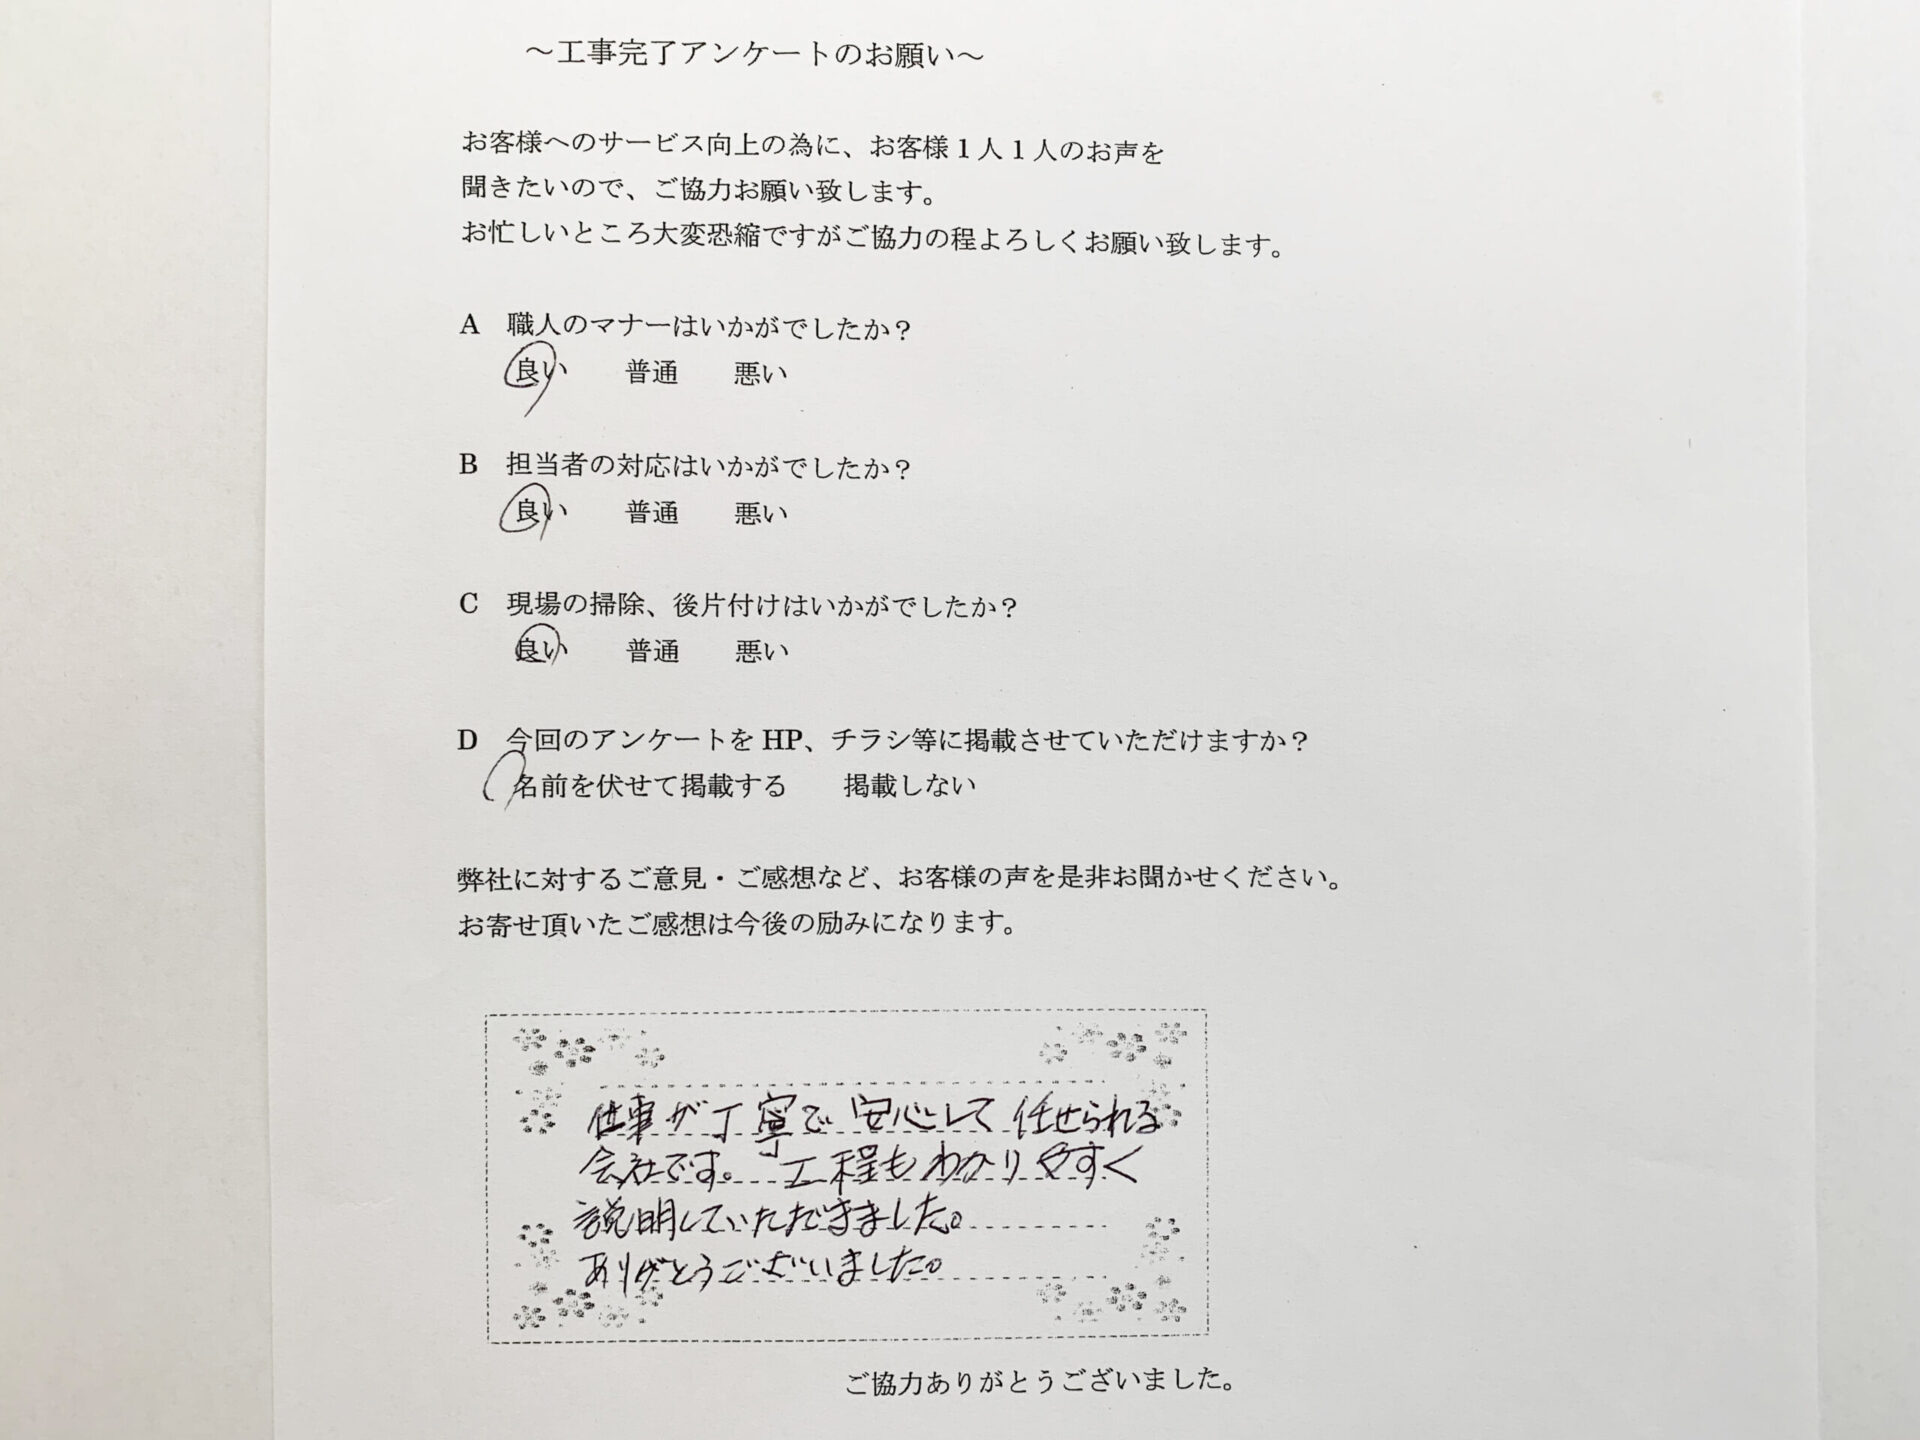 ～工事完了アンケートのお願い～
お客様へのサービス向上の為に、お客様１人１人のお声を
聞きたいので、ご協力お願い致します。
お忙しいところ大変恐縮ですがご協力の程よろしくお願い致します。
A 職人のマナーはいかがでしたか？
良い 普通 悪い
B 担当者の対応はいかがでしたか？
良い 普通 悪い
C 現場の掃除、後片付けはいかがでしたか？
良い 普通 悪い
D 今回のアンケートを HP、チラシ等に掲載させていただけますか？
名前を伏せて掲載する 掲載しない
弊社に対するご意見・ご感想など、お客様の声を是非お聞かせください。
お寄せ頂いたご感想は今後の励みになります。
仕事が丁寧で安心して任せられる
会社です。工程もわかりやすく
説明していただきました。
ありがとうございました。
ご協力ありがとうございました。